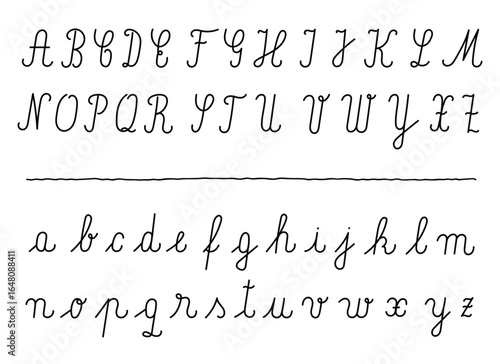 A B C D E F G H I J K L M
N O P Q R S T U V W Y X Z
a b c d e f g h i j k l m
n o p q r s t u v w x y z
Adobe Stock | #1648088411